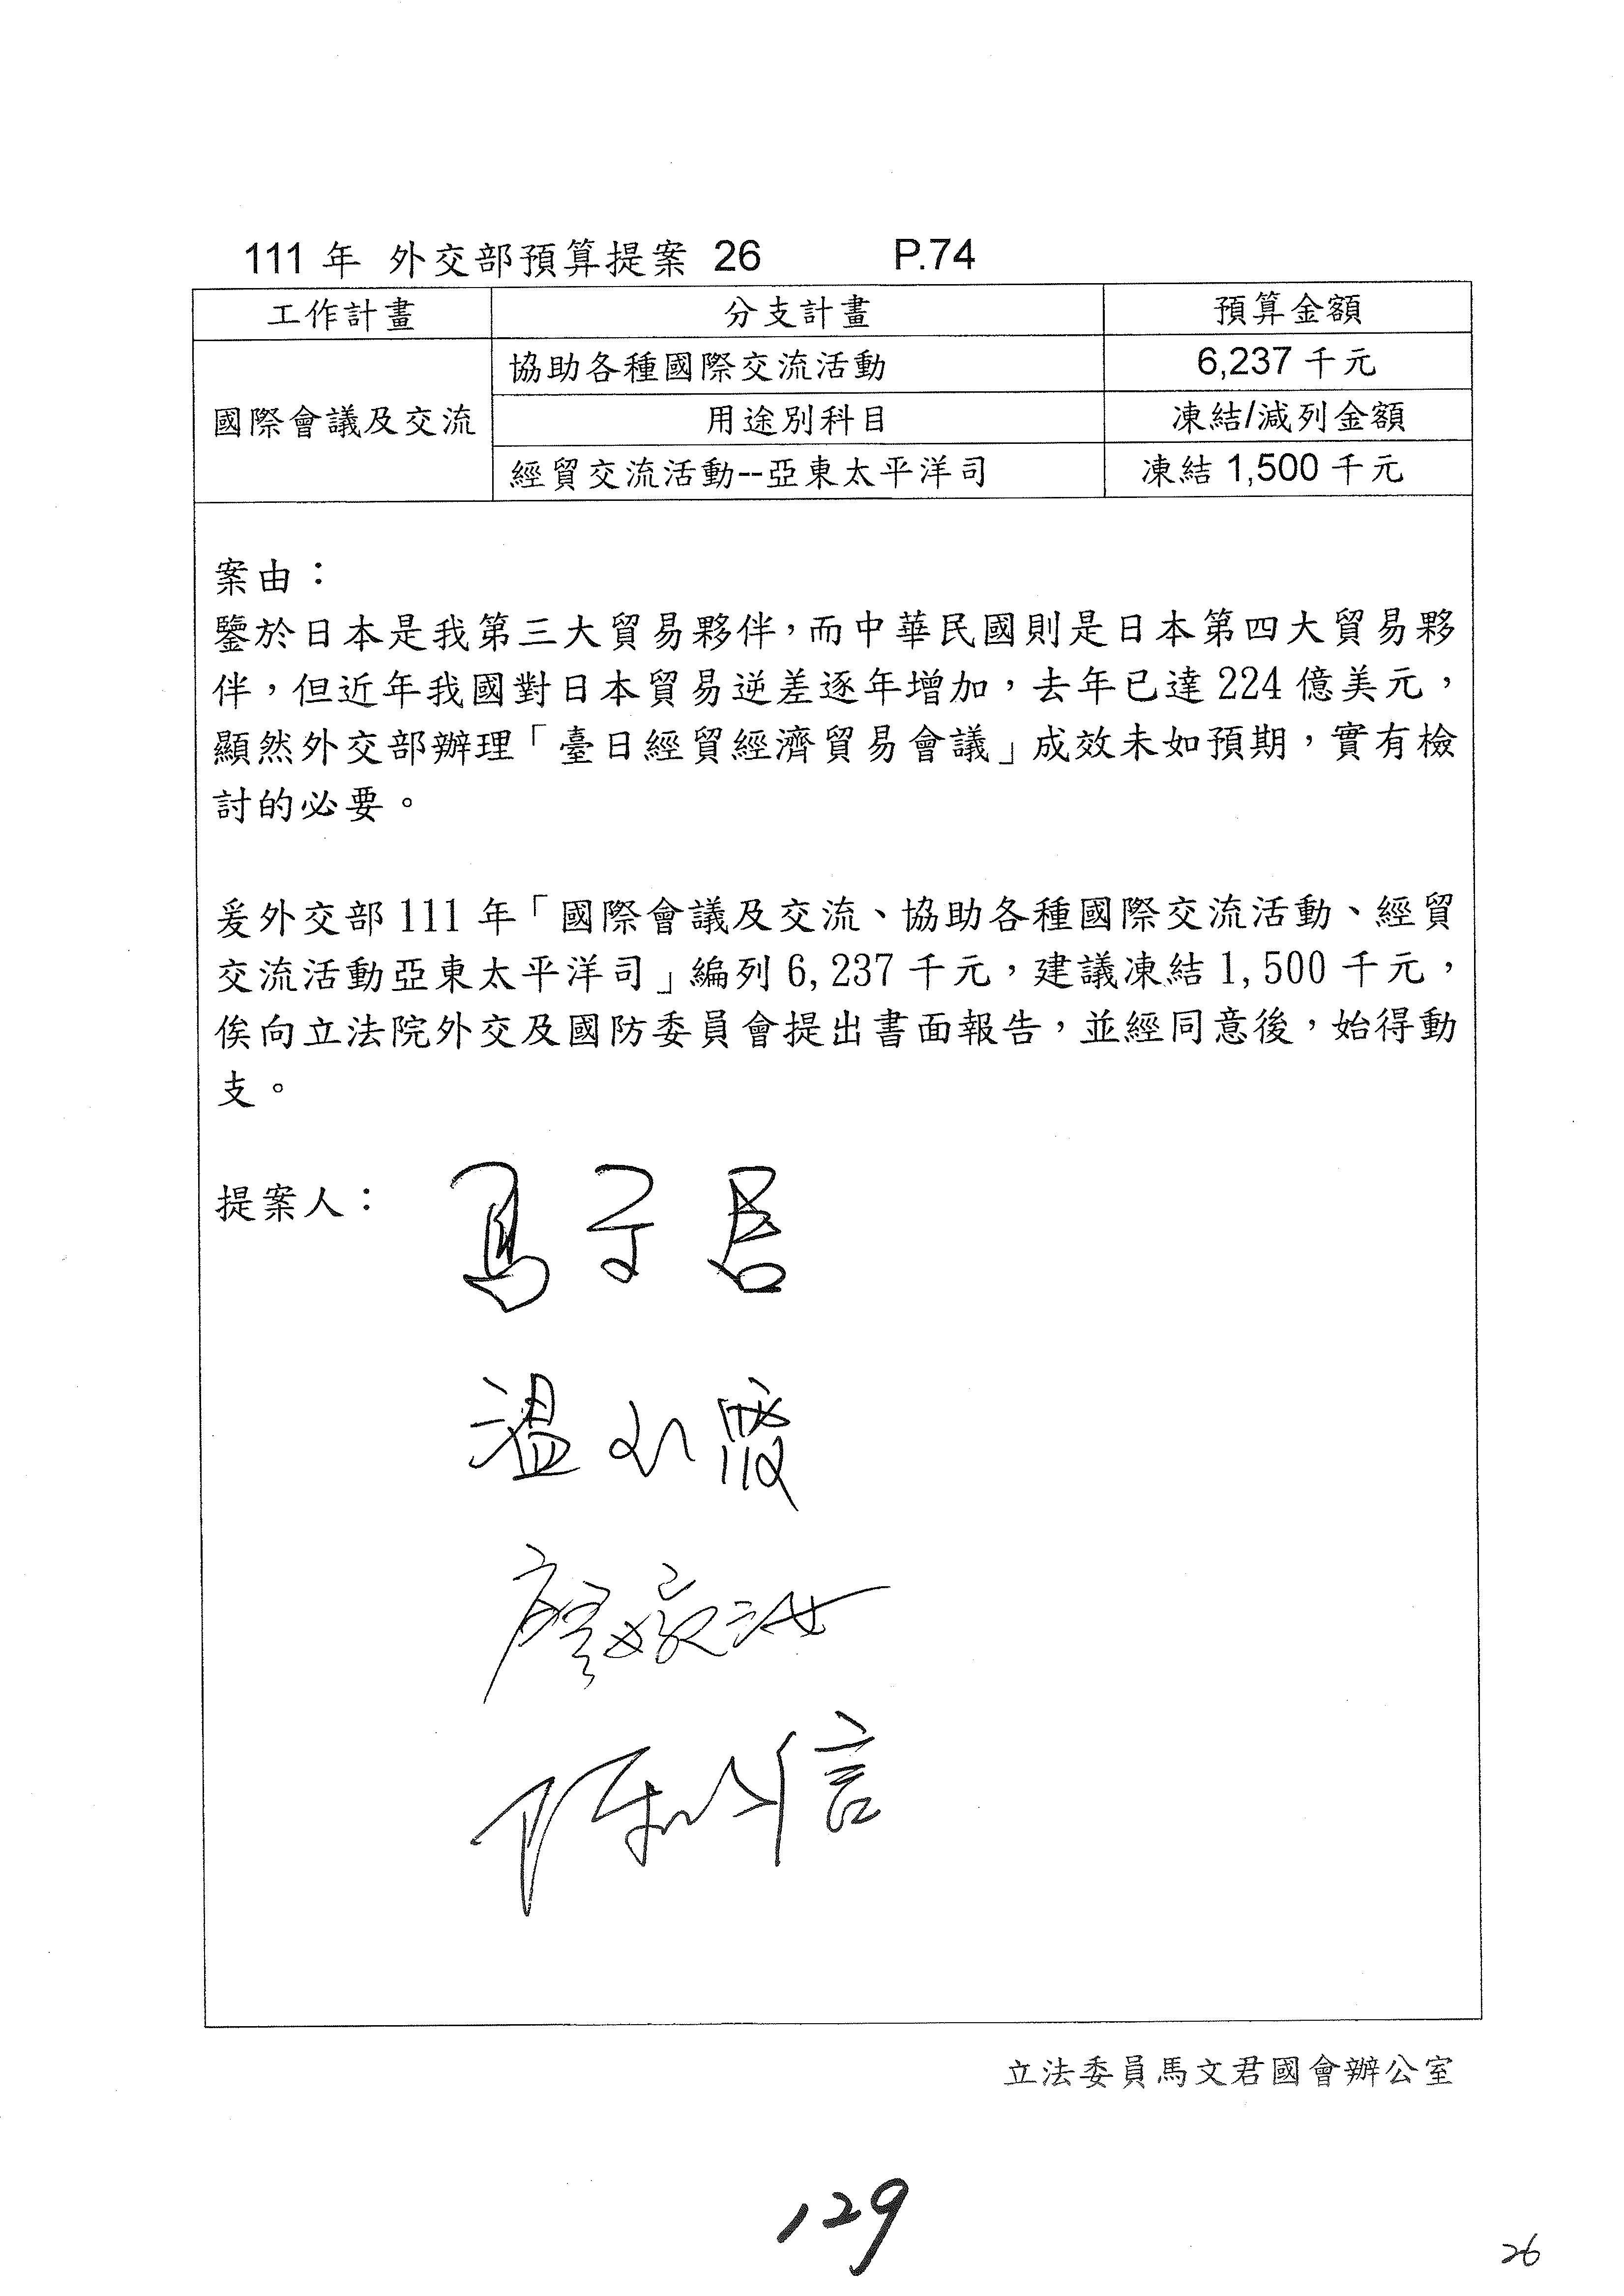 111 年 外交部預算提案 26 P.74
工作計畫 分支計畫 預算金額
協助各種國際交流活動 6,237 千元
國際會議及交流 用途別科目 凍結/減列金額
經貿交流活動--亞東太平洋司 凍結 1,500 千元
案由：
鑒於日本是我第三大貿易夥伴，而中華民國則是日本第四大貿易夥
伴，但近年我國對日本貿易逆差逐年增加，去年已達 224 億美元，
顯然外交部辦理「臺日經貿經濟貿易會議」成效未如預期，實有檢
討的必要。
爰外交部 111 年「國際會議及交流、協助各種國際交流活動、經貿
交流活動亞東太平洋司」編列 6,237 千元，建議凍結 1,500 千元，
俟向立法院外交及國防委員會提出書面報告，並經同意後，始得動
支。
提案人：
馬文君
溫玉霞
陳以信
立法委員馬文君國會辦公室
129
26